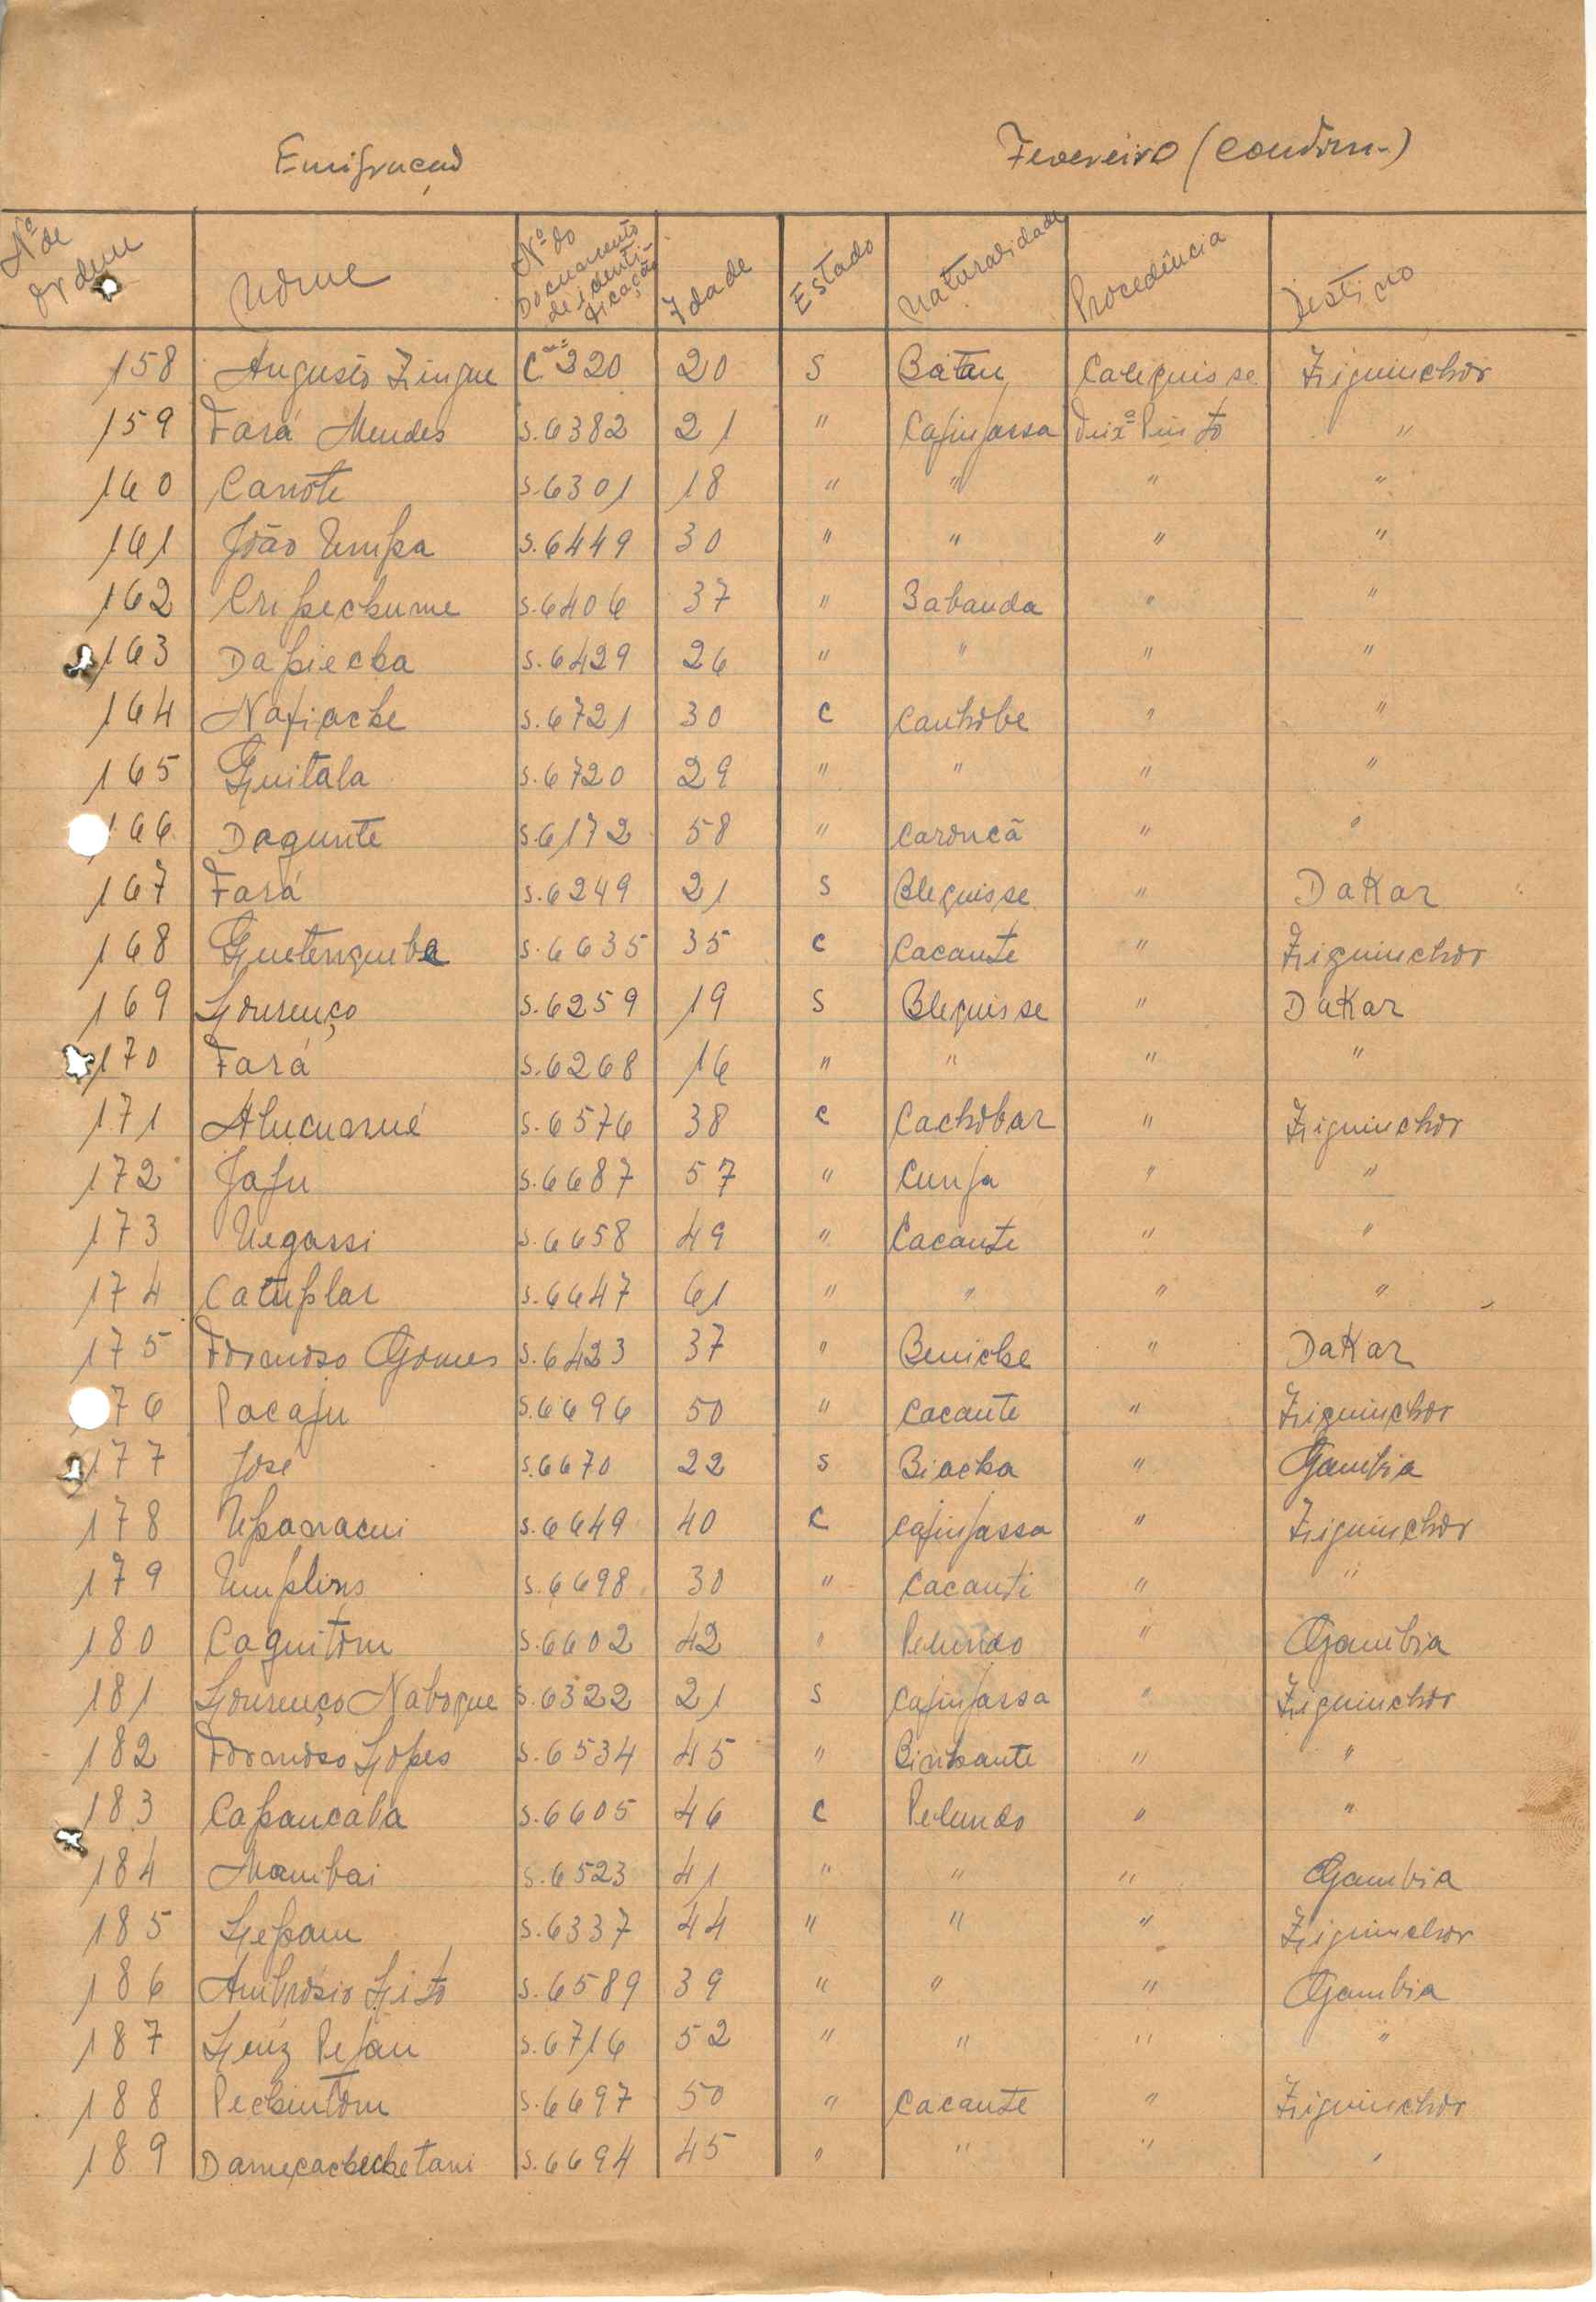 Emigração
Fevereiro (contin.)
Nº de ordem Nome Nº do Documento de identificação Idade Estado Naturalidade Procedência Destino
158 Augusto Zingue C. 320 20 S Batau Calequisse Ziguinchor
159 Fará Mendes S.6382 21 " Cajinjassa Teixª Pinto "
160 Canote S.6301 18 " " " "
161 João Umpa S.6449 30 " " " "
162 Cripechume S.6406 37 " Babanda " "
163 Dapiecha S.6429 26 " " " "
164 Nafiache S.6721 30 C Canhobe " "
165 Guitala S.6720 29 " " " "
166 Dagunte S.6172 58 " Caroncã " "
167 Fará S.6249 21 S Blequisse " Dakar
168 Guetenguba S.6635 35 C Cacante " Ziguinchor
169 Lourenço S.6259 19 S Blequisse " Dakar
170 Fará S.6268 16 " " " "
171 Alucuarné S.6576 38 C Cachobar " Ziguinchor
172 Jaju S.6687 57 " Cunja " "
173 Negassi S.6658 49 " Cacante " "
174 Catuplar S.6647 61 " " " "
175 Formoso Gomes S.6423 37 " Beniche " Dakar
76 Pacaju S.6696 50 " Cacante " Ziguinchor
177 José S.6670 22 S Biacha " Gambia
178 Upanacui S.6649 40 C Cajinjassa " Ziguinchor
179 Umplins S.6698 30 " Cacanti " "
180 Caguitom S.6602 42 " Pelundo " Gambia
181 Lourenço Naboque S.6322 21 S Cajinjassa " Ziguinchor
182 Formoso Lopes S.6534 45 " Binhante " "
183 Capancaba S.6605 46 C Pelundo " "
184 Mambai S.6523 41 " " " Gambia
185 Lepam S.6337 44 " " " Ziguinchor
186 Ambrósio Lito S.6589 39 " " " Gambia
187 Luiz Pejau S.6716 52 " " " "
188 Pechintom S.6697 50 " Cacante " Ziguinchor
189 S.6694 45 " " " "